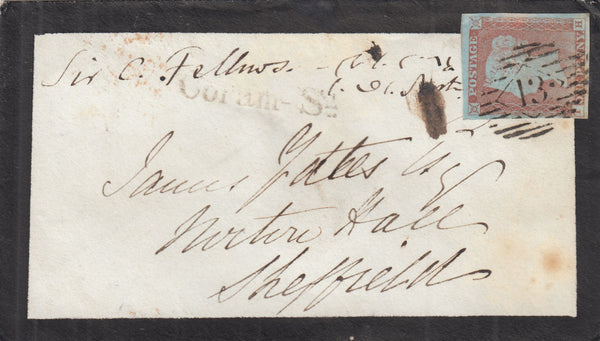 Sir C. Fellows. -
Coram-St
POSTAGE
13
James Yates Esq
Norton Hall
Sheffield